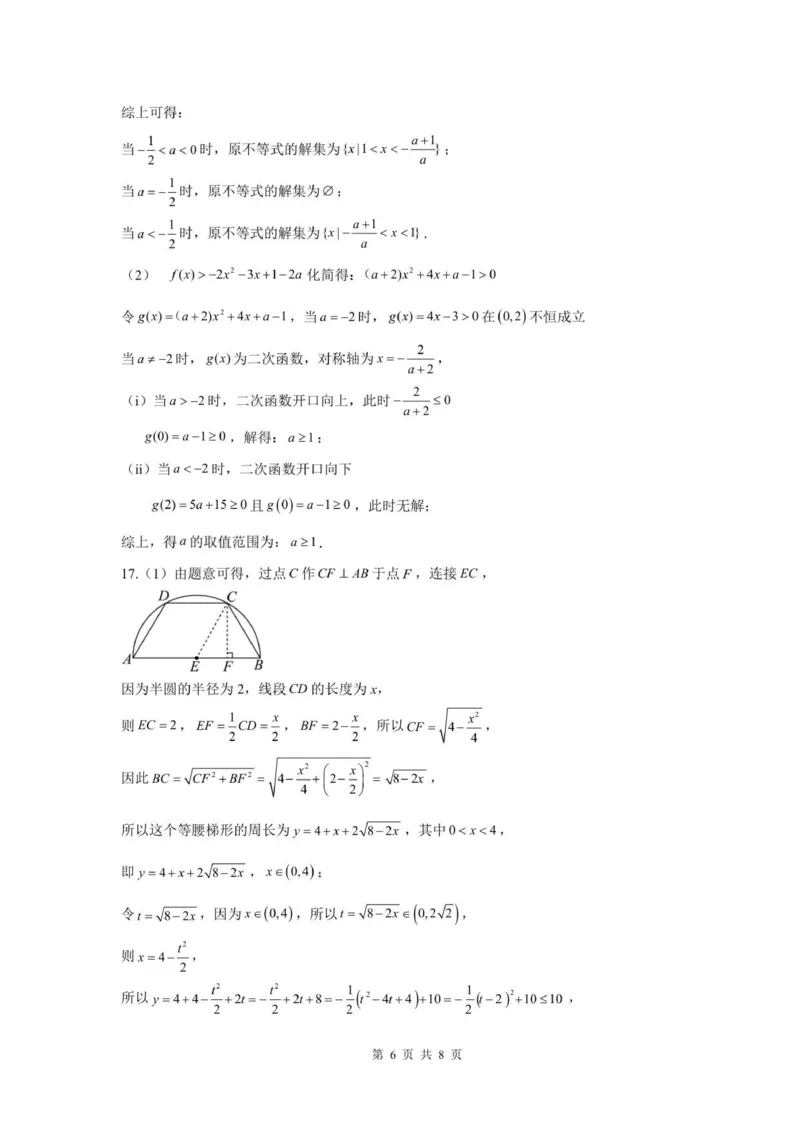 综上可得：
当-1/2<a<0时，原不等式的解集为{x|1<x<-(a+1)/a}；
当a=-1/2时，原不等式的解集为∅；
当a<-1/2时，原不等式的解集为{x|-(a+1)/a<x<1}.
（2） f(x)>-2x²-3x+1-2a 化简得：（a+2)x²+4x+a-1>0
令g(x)=（a+2)x²+4x+a-1，当a=-2时，g(x)=4x-3>0在(0,2)不恒成立
当a≠-2时，g(x)为二次函数，对称轴为x=-2/(a+2)，
（i）当a>-2时，二次函数开口向上，此时-2/(a+2)≤0
g(0)=a-1≥0，解得：a≥1；
（ii）当a<-2时，二次函数开口向下
g(2)=5a+15≥0且g(0)=a-1≥0，此时无解；
综上，得a的取值范围为：a≥1.
17.（1）由题意可得，过点C作CF⊥AB于点F，连接EC，
D C
A E F B
因为半圆的半径为2，线段CD的长度为x，
则EC=2，EF=1/2CD=x/2，BF=2-x/2，所以CF=√(4-x²/4)，
因此BC=√(CF²+BF²)=√(4-x²/4+(2-x/2)²)=√(8-2x)，
所以这个等腰梯形的周长为y=4+x+2√(8-2x)，其中0<x<4，
即y=4+x+2√(8-2x)，x∈(0,4)；
令t=√(8-2x)，因为x∈(0,4)，所以t=√(8-2x)∈(0,2√2)，
则x=4-t²/2，
所以y=4+4-t²/2+2t=-t²/2+2t+8=-1/2(t²-4t+4)+10=-1/2(t-2)²+10≤10，
第 6 页 共 8 页